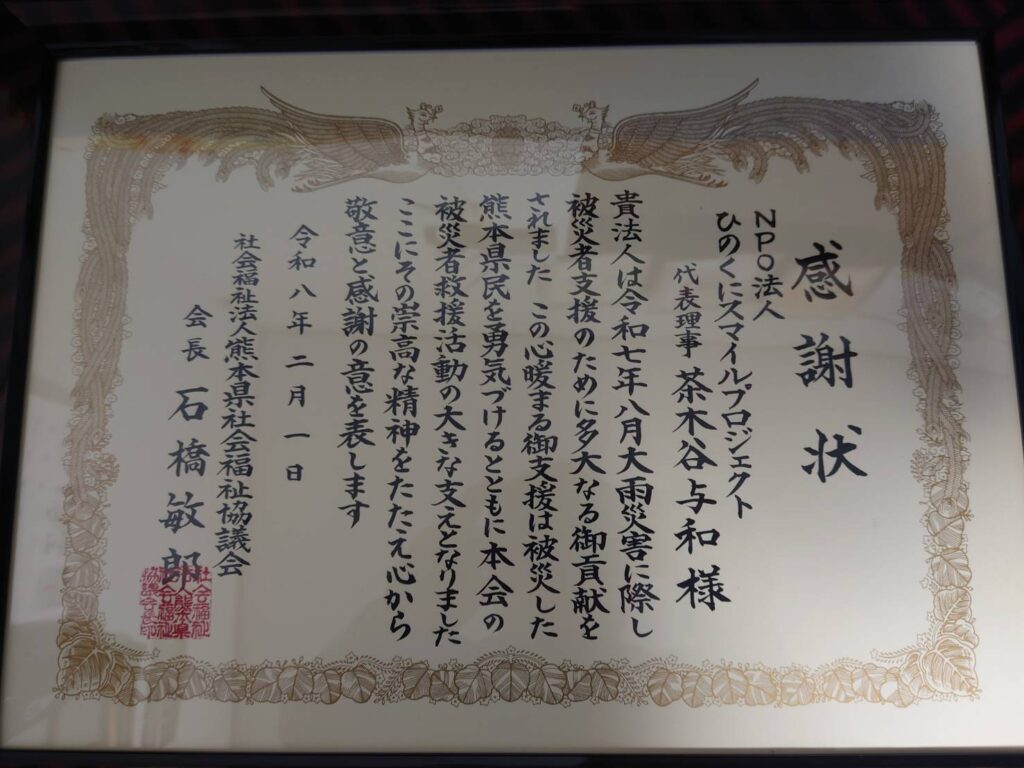 感謝状
NPO法人
ひのくにスマイルプロジェクト
代表理事 茶木谷与和様
貴法人は令和七年八月大雨災害に際し
被災者支援のために多大なる御貢献を
されました この心暖まる御支援は被災した
熊本県民を勇気づけるとともに本会の
被災者救援活動の大きな支えとなりました
ここにその崇高な精神をたたえ心から
敬意と感謝の意を表します
令和八年二月一日
社会福祉法人熊本県社会福祉協議会
会長 石橋敏郎